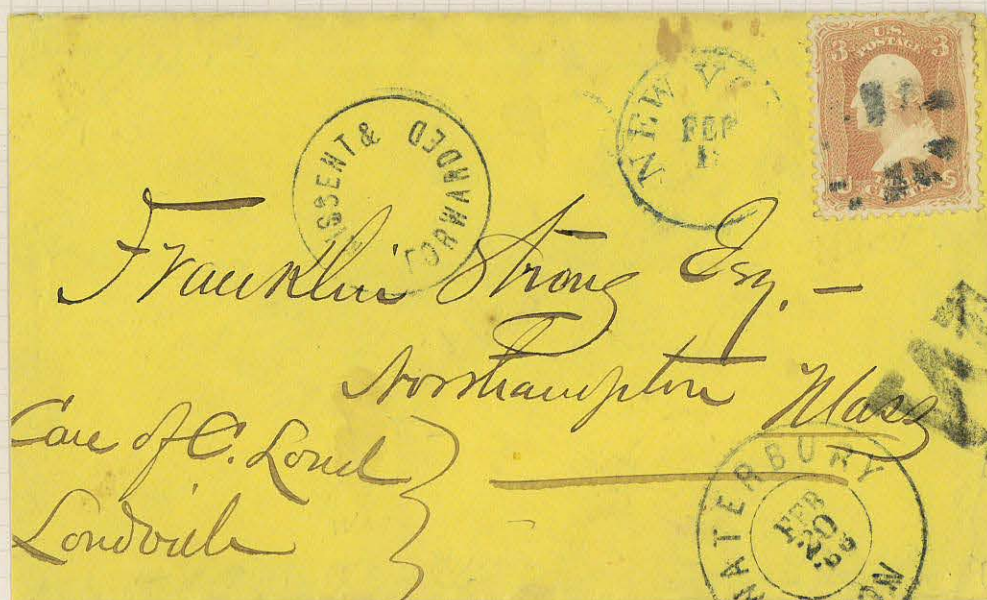 U.S.
POSTAGE
3 3
CENTS
NEW YO
FEB
MISSENT & FORWARDED
Franklin Strong Esq. –
Northampton Mass
Care of C. Loud
Loudville
WATERBURY
FEB
20
CON